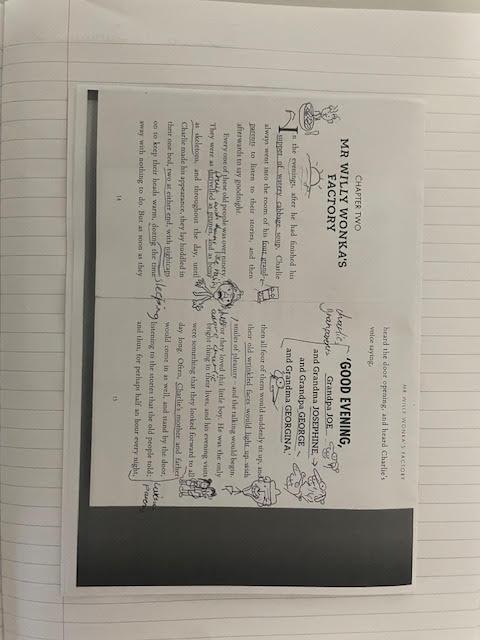 CHAPTER TWO
MR WILLY WONKA'S
FACTORY
In the evenings, after he had finished his
supper of watery cabbage soup, Charlie
always went into the room of his four grand-
parents to listen to their stories, and then
afterwards to say goodnight.
Every one of these old people was over ninety.
They were as shrivelled as prunes, and as bony
as skeletons, and throughout the day, until
Charlie made his appearance, they lay huddled in
their one bed, two at either end, with nightcaps
on to keep their heads warm, dozing the time
away with nothing to do. But as soon as they
sleeping
14
MR WILLY WONKA'S FACTORY
heard the door opening, and heard Charlie's
voice saying,
'GOOD EVENING,
Grandpa JOE
and Grandma JOSEPHINE,
and Grandpa GEORGE
and Grandma GEORGINA.'
charlie's
then all four of them would suddenly sit up, and
their old wrinkled faces would light up with
smiles of pleasure – and the talking would begin.
For they loved this little boy. He was the only
bright thing in their lives, and his evening visits
were something that they looked forward to all
day long. Often, Charlie's mother and father
would come in as well, and stand by the door,
listening to the stories that the old people told;
and thus, for perhaps half an hour every night,
15